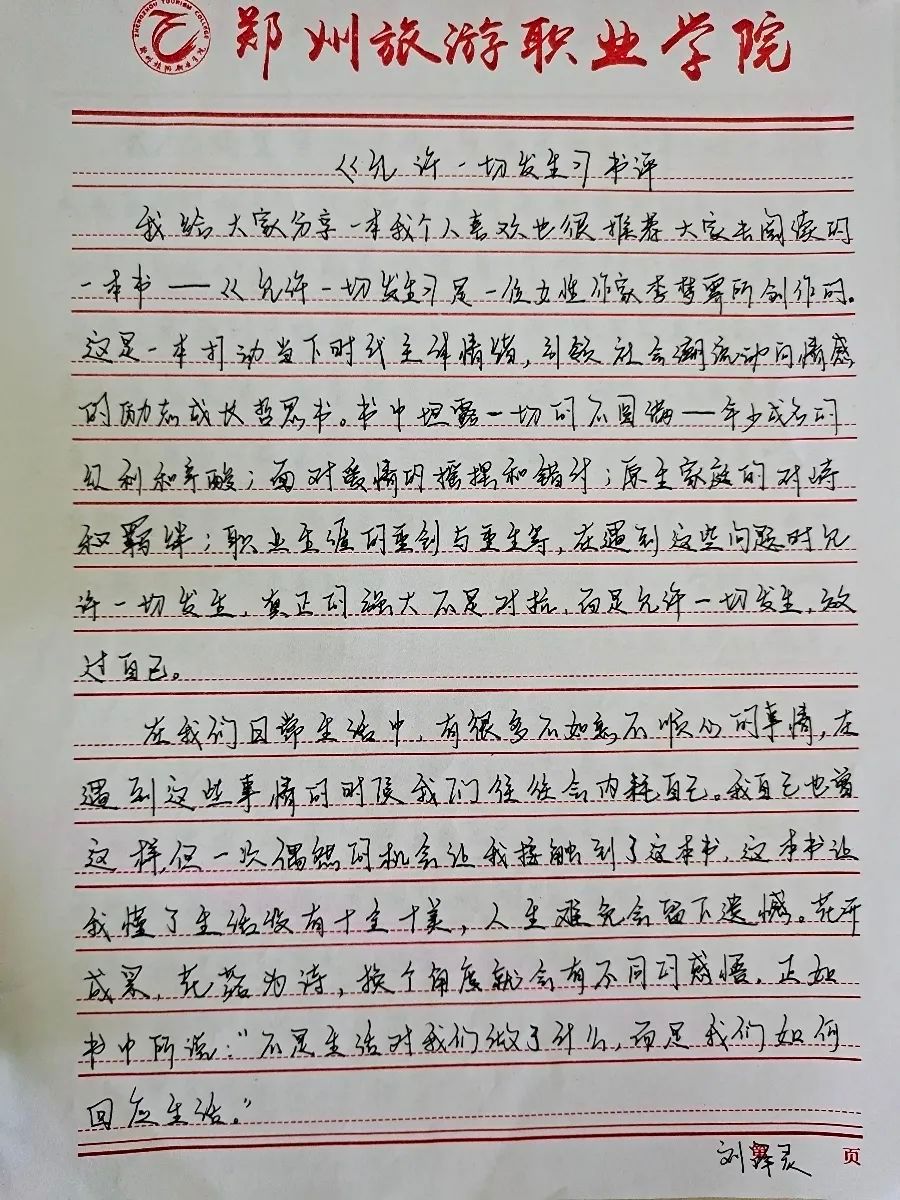 ZHENGZHOU TOURISM COLLEGE
郑州旅游职业学院
郑州旅游职业学院
《允许一切发生》书评
我给大家分享一本我个人喜欢也很推荐大家去阅读的
一本书——《允许一切发生》是一位女性作家李梦霁所创作的。
这是一本打动当下时代主译情绪,引领社会潮流动向情感
的励志成长哲思书。书中坦露一切的不圆满——年少成名的
红利和辛酸;面对爱情的摇摆和错付;原生家庭的对峙
和羁绊;职业生涯的重创与重生等,在遇到这些问题时允
许一切发生,真正的强大不是对抗,而是允许一切发生,放
过自己。
在我们日常生活中,有很多不如意不顺心的事情,在
遇到这些事情的时候我们往往会内耗自己。我自己也曾
这样,但一次偶然的机会让我接触到了这本书,这本书让
我懂了生活没有十全十美,人生难免会留下遗憾。花开
成果,花落为诗,换个角度就会有不同的感悟,正如
书中所说:“不是生活对我们做了什么,而是我们如何
回应生活。”
刘 灵
第 页